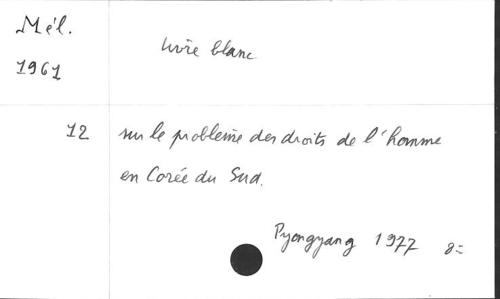 Mél.
1961
livre blanc
12 sur le problème des droits de l'homme
en Corée du Sud.
Pyongyang 1977 8=